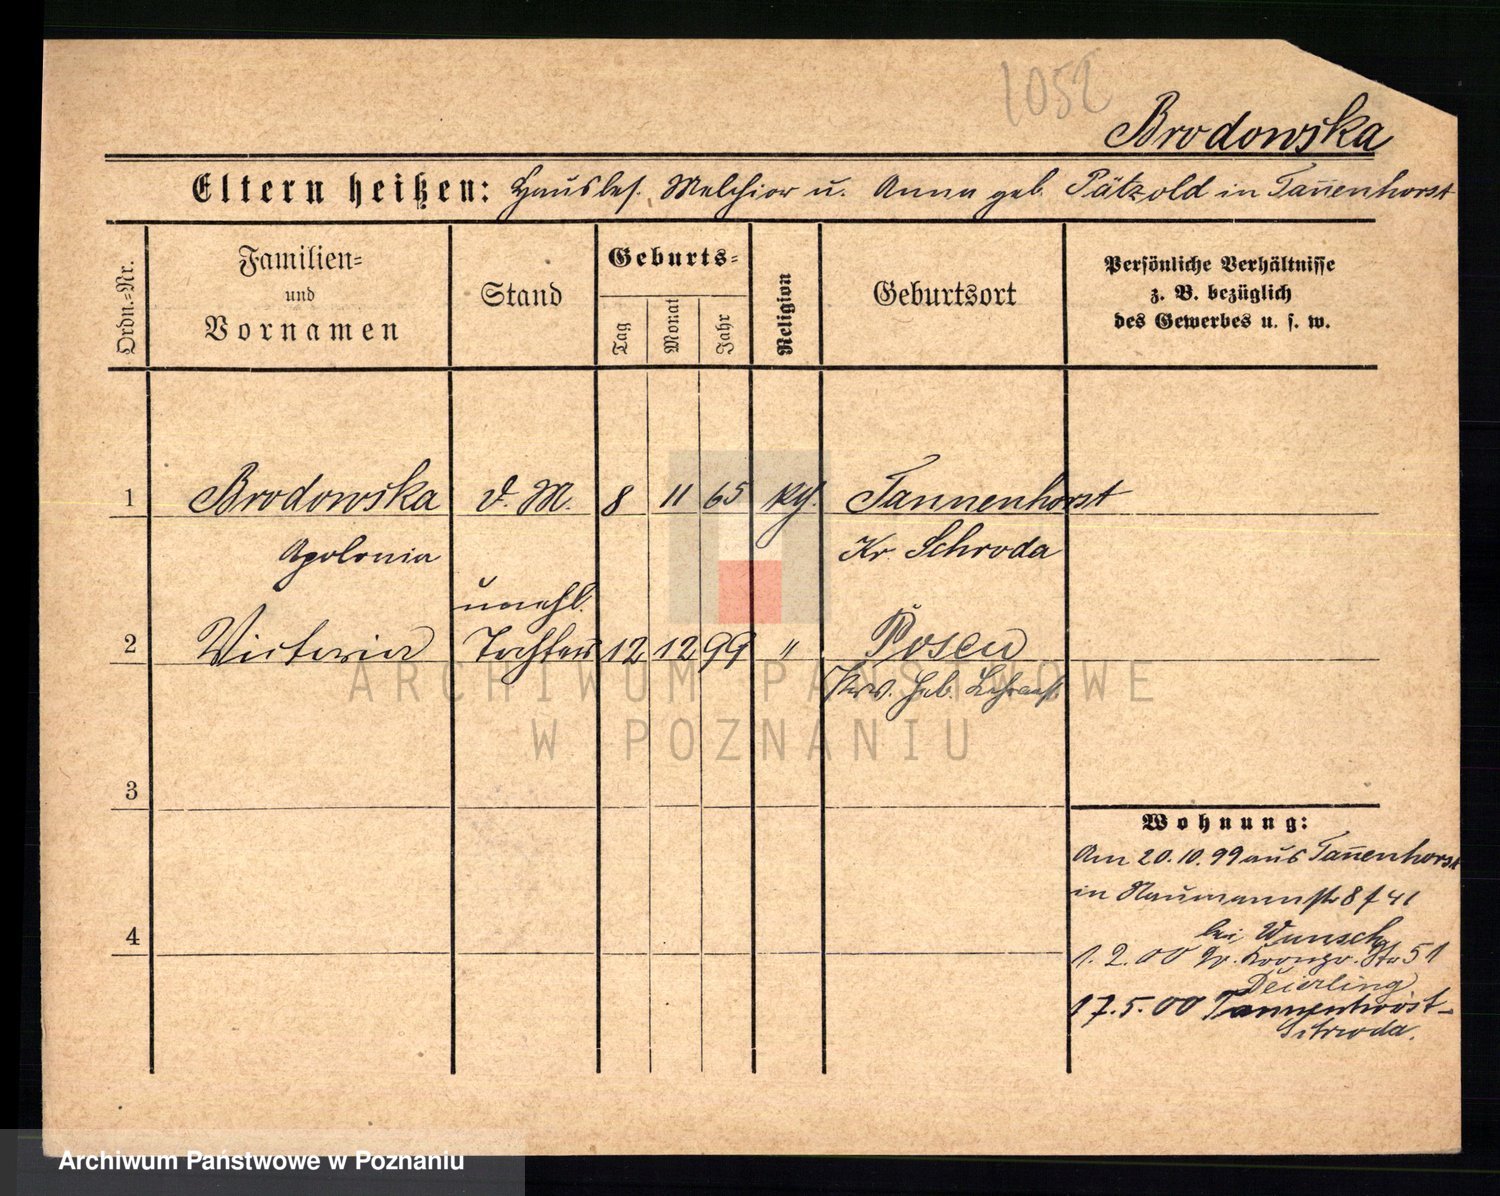 1052
Brodowska
Eltern heißen: Hausbes. Melchior u. Anna geb. Pätzold in Tannenhorst
Ordn.-Nr.
Familien-
und
Vornamen
Stand
Geburts-
Tag
Monat
Jahr
Religion
Geburtsort
Persönliche Verhältnisse
z. B. bezüglich
des Gewerbes u. s. w.
1 Brodowska d. M. 8 11 65 Tannenhorst
Apolonia Kr. Schroda
unehl.
2 Victoria Tochter 12 12 99 " Posen
Prov. Heb. Lehranst.
3
4
Wohnung:
Am 20.10.99 aus Tannenhorst
in Naumannstr 8 f 41
bei Wunsch
1. 2. 00 Kronpr. Str 51
Deierling
17. 5. 00 Tannenhorst-
Schroda.
ARCHIWUM PAŃSTWOWE
W POZNANIU
Archiwum Państwowe w Poznaniu